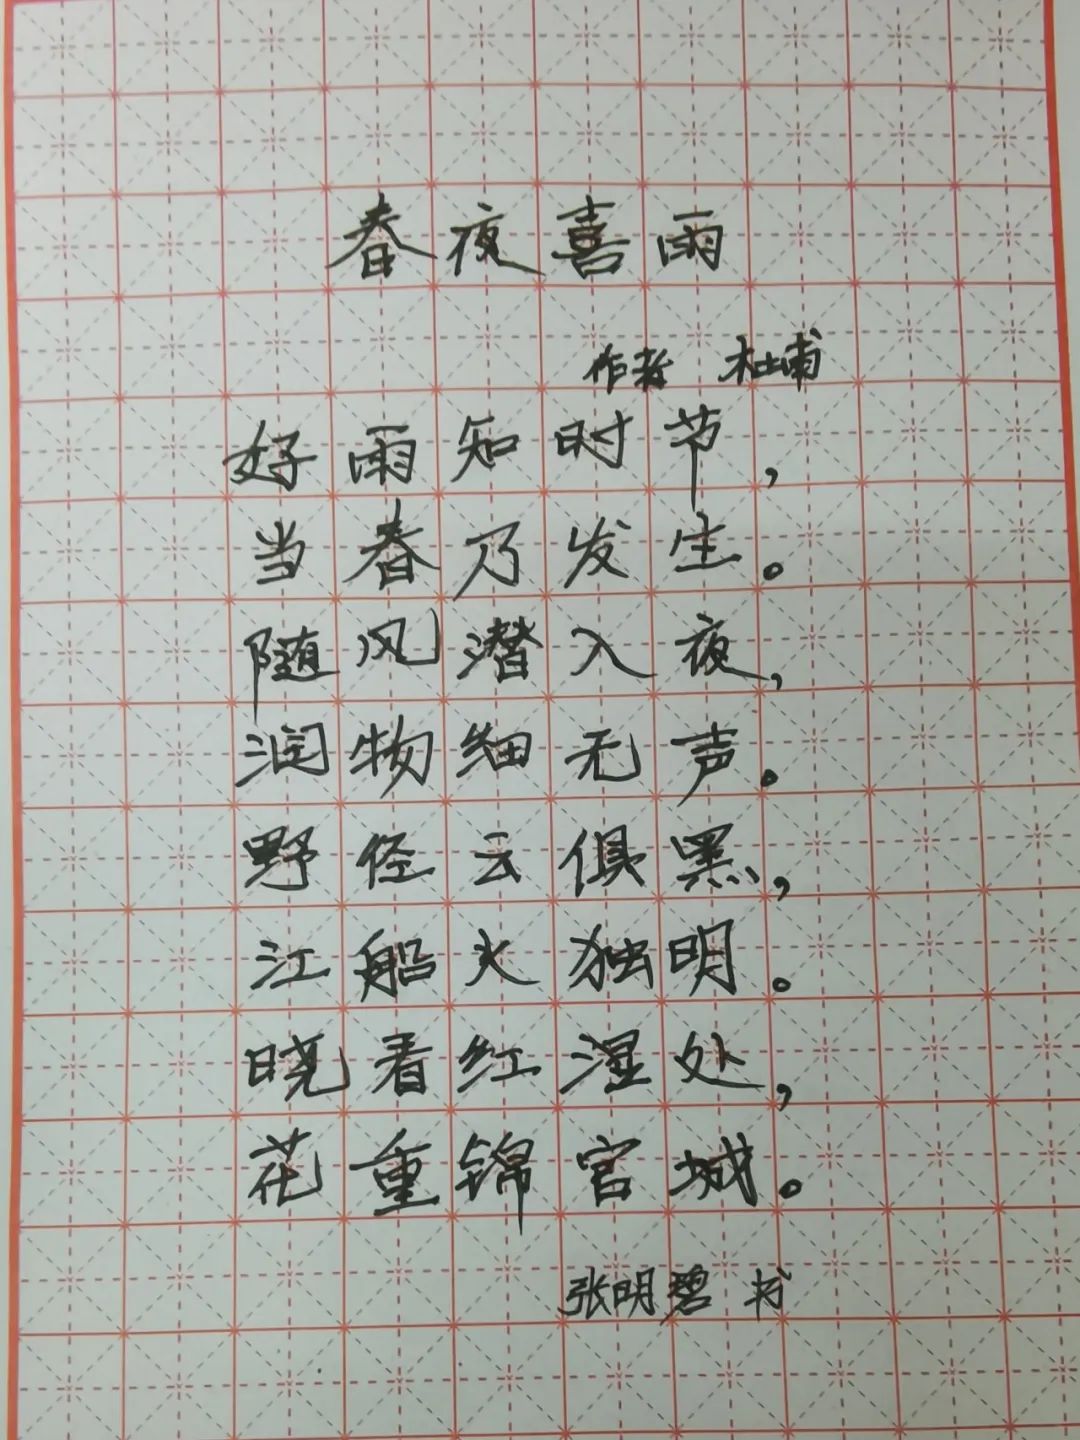 春夜喜雨
作者 杜甫
好雨知时节，
当春乃发生。
随风潜入夜，
润物细无声。
野径云俱黑，
江船火独明。
晓看红湿处，
花重锦官城。
张明碧 书